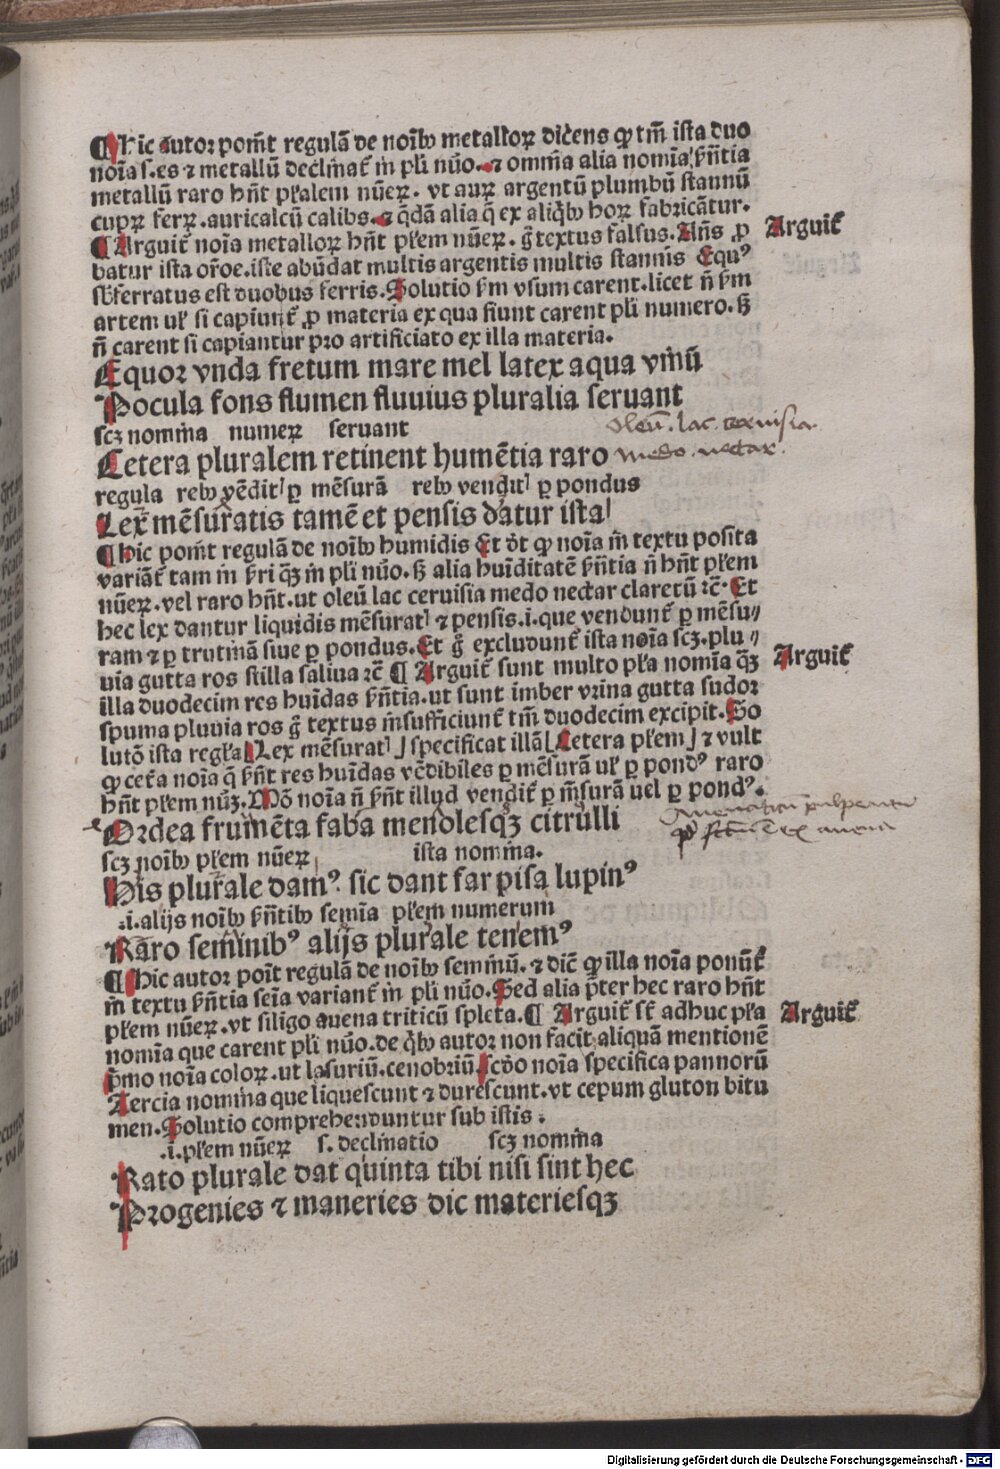 ¶ Hic autor pom̄t regulā de noīb₉ metalloꝝ dicens ꝙ tm̄ ista duo
noīa s.es ⁊ metallū declinat᷑ in pl̄i nūo. ⁊ omnia alia nomīa s̄n̄tia
metallū raro hn̄t pl̄alem nūeꝝ. vt auꝝ argentū plumbū stannū
cupꝝ ferꝝ.auricalcū calibs. ⁊ q̄dā alia q̄ ex aliq̄b₉ hoꝝ fabricātur.
¶ Arguit᷑ noīa metalloꝝ hn̄t pl̄em nūeꝝ. g̊ textus falsus. An̄s ꝓ
Arguit᷑
batur ista or̄oe.iste abūdat multis argentis multis stannis Equꝰ
sb̄ferratus est duobus ferris. Solutio s̄m vsum carent.licet n̄ s̄m
artem ul̄ si capiunt᷑ ꝓ materia ex qua fiunt carent pl̄i numero. s̄ꝫ
n̄ carent si capiantur pro artificiato ex illa materia.
Equor vnda fretum mare mel latex aqua vinū
Pocula fons flumen fluuius pluralia seruant
scꝫ nomina numeꝝ seruant
Oleū. lac. ceruisia
Cetera pluralem retinent humētia raro
medo. nectar.
regula reb₉ vēdit᷑ ꝑ mēsurā reb₉ vendit᷑ ꝑ pondus
Lex mēsuratis tamē et pensis datur ista
¶ Hic pom̄t regulā de noīb₉ humidis Et dt̄ ꝙ noīa in textu posita
variāt᷑ tam in s̄ri qꝫ in pl̄i nūo. s̄ꝫ alia huīditatē s̄n̄tia n̄ hn̄t pl̄em
nūeꝝ.vel raro hn̄t.ut oleū lac ceruisia medo nectar claretū ⁊c̄. Et
hec lex dantur liquidis mēsurat᷑ ⁊ pensis.i.que vendunt᷑ ꝑ mēsu⸗
ram ⁊ ꝑ trutinā siue ꝑ pondus. Et g̊ excludunt᷑ ista noīa scꝫ.plu⸗
uia gutta ros stilla saliua ⁊c̄ ¶ Arguit᷑ sunt multo pl̄a nomīa qꝫ
Arguit᷑
illa duodecim res huīdas s̄n̄tia.ut sunt imber vrina gutta sudor
spuma pluuia ros g̊ textus insufficiunt᷑ tm̄ duodecim excipit. So
lutō ista regl̄a [Lex mēsurat᷑] specificat illā [Cetera pl̄em] ⁊ vult
ꝙ cet̄a noīa q̄ s̄n̄t res huīdas vēdibiles ꝑ mēsurā ul̄ ꝑ pondꝰ raro
hn̄t pl̄em nūꝫ. Mō noīa n̄ s̄n̄t illud vendit᷑ ꝑ m̄surā uel ꝑ pondꝰ.
Ordea frumēta faba mendolesqꝫ citrulli
scꝫ noīb₉ pl̄em nūeꝝ ista nomina.
His plurale damꝰ. sic dant far pisa lupinꝰ
.i.alijs noīb₉ s̄n̄tib₉ semīa pl̄em numerum
Raro seminibꝰ alijs plurale tenemꝰ
¶ Hic autor poīt regulā de noīb₉ seminū. ⁊ dic̄ ꝙ illa noīa ponūt᷑
in textu s̄n̄tia seīa variant᷑ in pl̄i nūo. Sed alia p̄ter hec raro hn̄t
pl̄em nūeꝝ.vt siligo auena triticū spleta. ¶ Arguit᷑ st̄ adhuc pl̄a
Arguit᷑
nomīa que carent pl̄i nūo.de q̄b₉ autor non facit aliquā mentionē
p̄mo noīa coloꝝ.ut lasuriū.cenobriū. scd̄o noīa specifica pannorū
Tercia nomina que liquescunt ⁊ durescunt.vt cepum gluton bitu
men. Solutio comprehenduntur sub istis.
.i.pl̄em nūeꝝ s.declinatio scꝫ nomina
Rato plurale dat quinta tibi nisi sint hec
Progenies ⁊ maneries dic materiesqꝫ
Digitalisierung gefördert durch die Deutsche Forschungsgemeinschaft - DFG